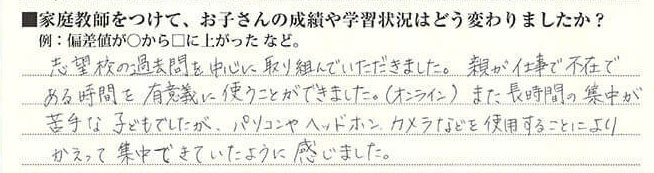 ■家庭教師をつけて、お子さんの成績や学習状況はどう変わりましたか？
例：偏差値が○から□に上がった など。
志望校の過去問を中心に取り組んでいただきました。親が仕事で不在で
ある時間を有意義に使うことができました。（オンライン）また長時間の集中が
苦手な子どもでしたが、パソコンやヘッドホン、カメラなどを使用することにより
かえって集中できていたように感じました。